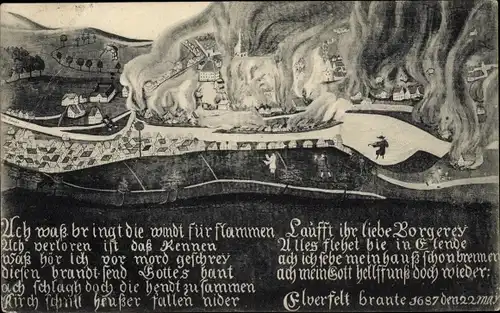 Ach waß bringt die windt für flammen
Ach verloren ist daß Rennen
waß hör ich vor mord geschrey
diesen brandt send Gotte's hant
ach schlagh doch die hendt zusammen
Kirch schull heußer fallen nider
Laufft ihr liebe Borgerey
Alles stehet hie in Elende
ach ich sehe mein hauß schon brennen
ach mein Gott hellff unß doch wieder:
Elverfelt brante 1687 den 22 may